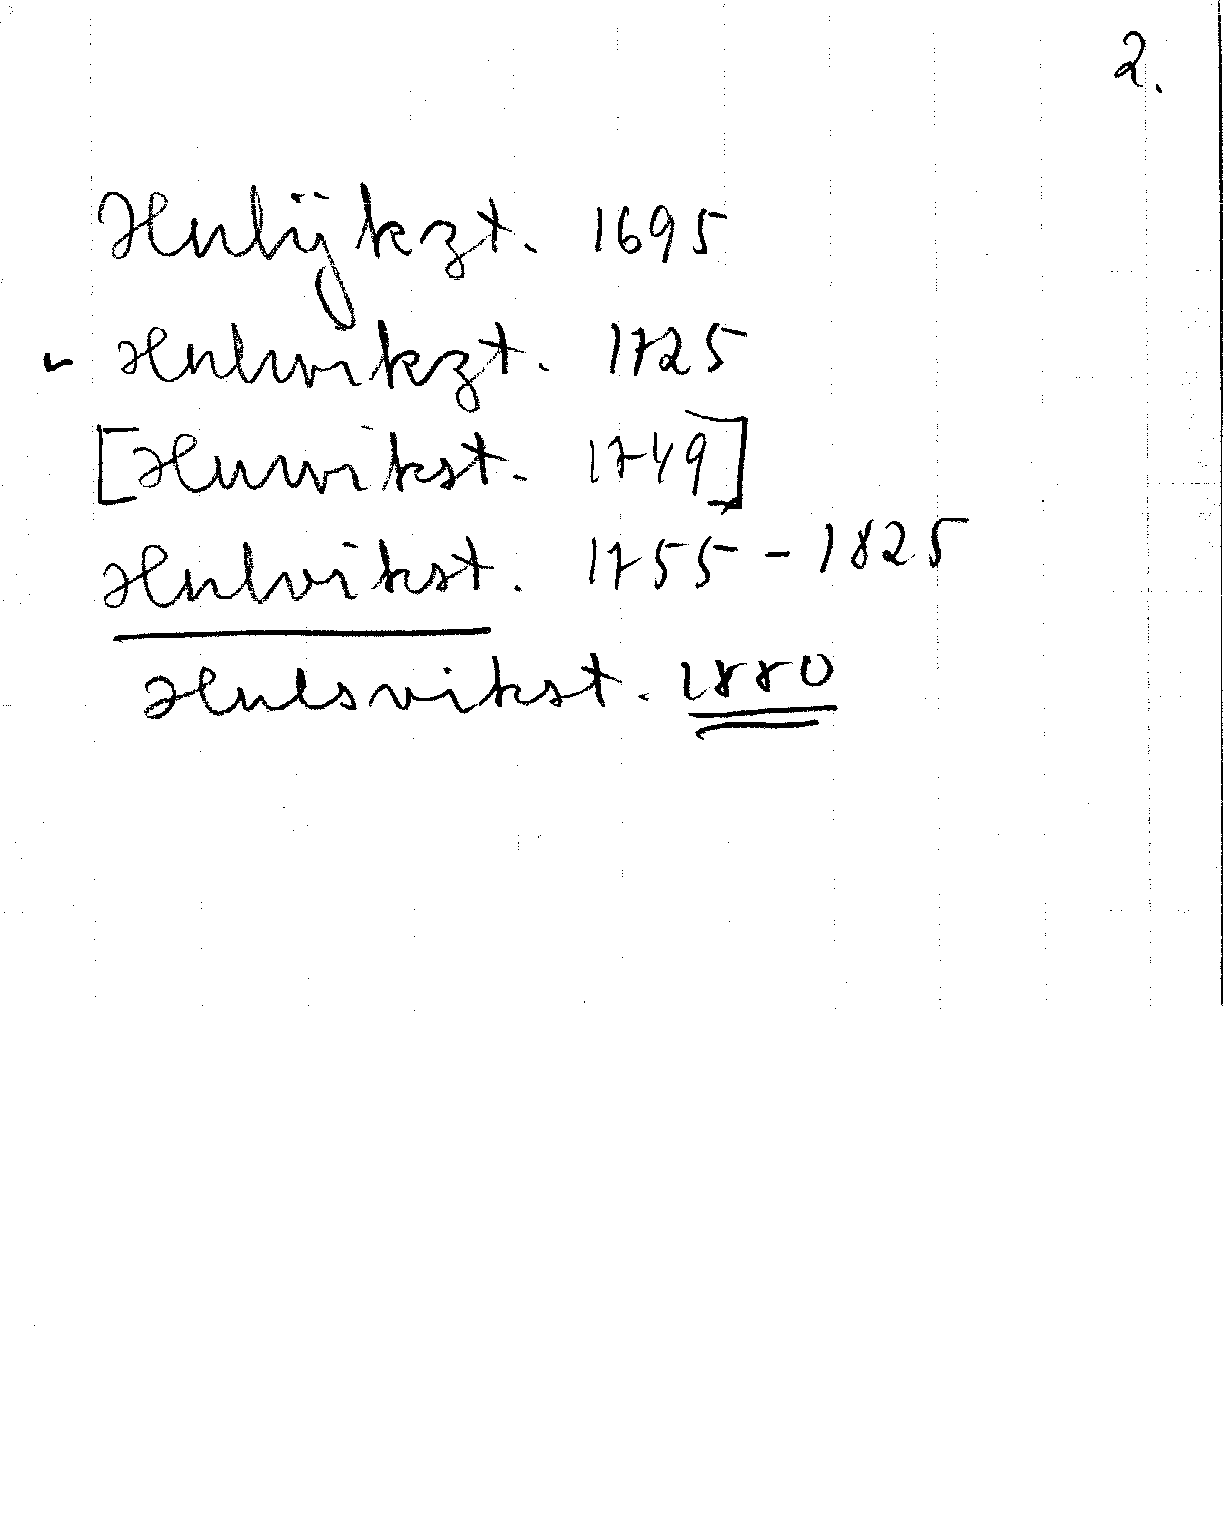 2.
Hulijkzt. 1695
Hulwikzt. 1725
[Huwikst. 1749]
Hulvikst. 1755 - 1825
Hulsvikst. 1880